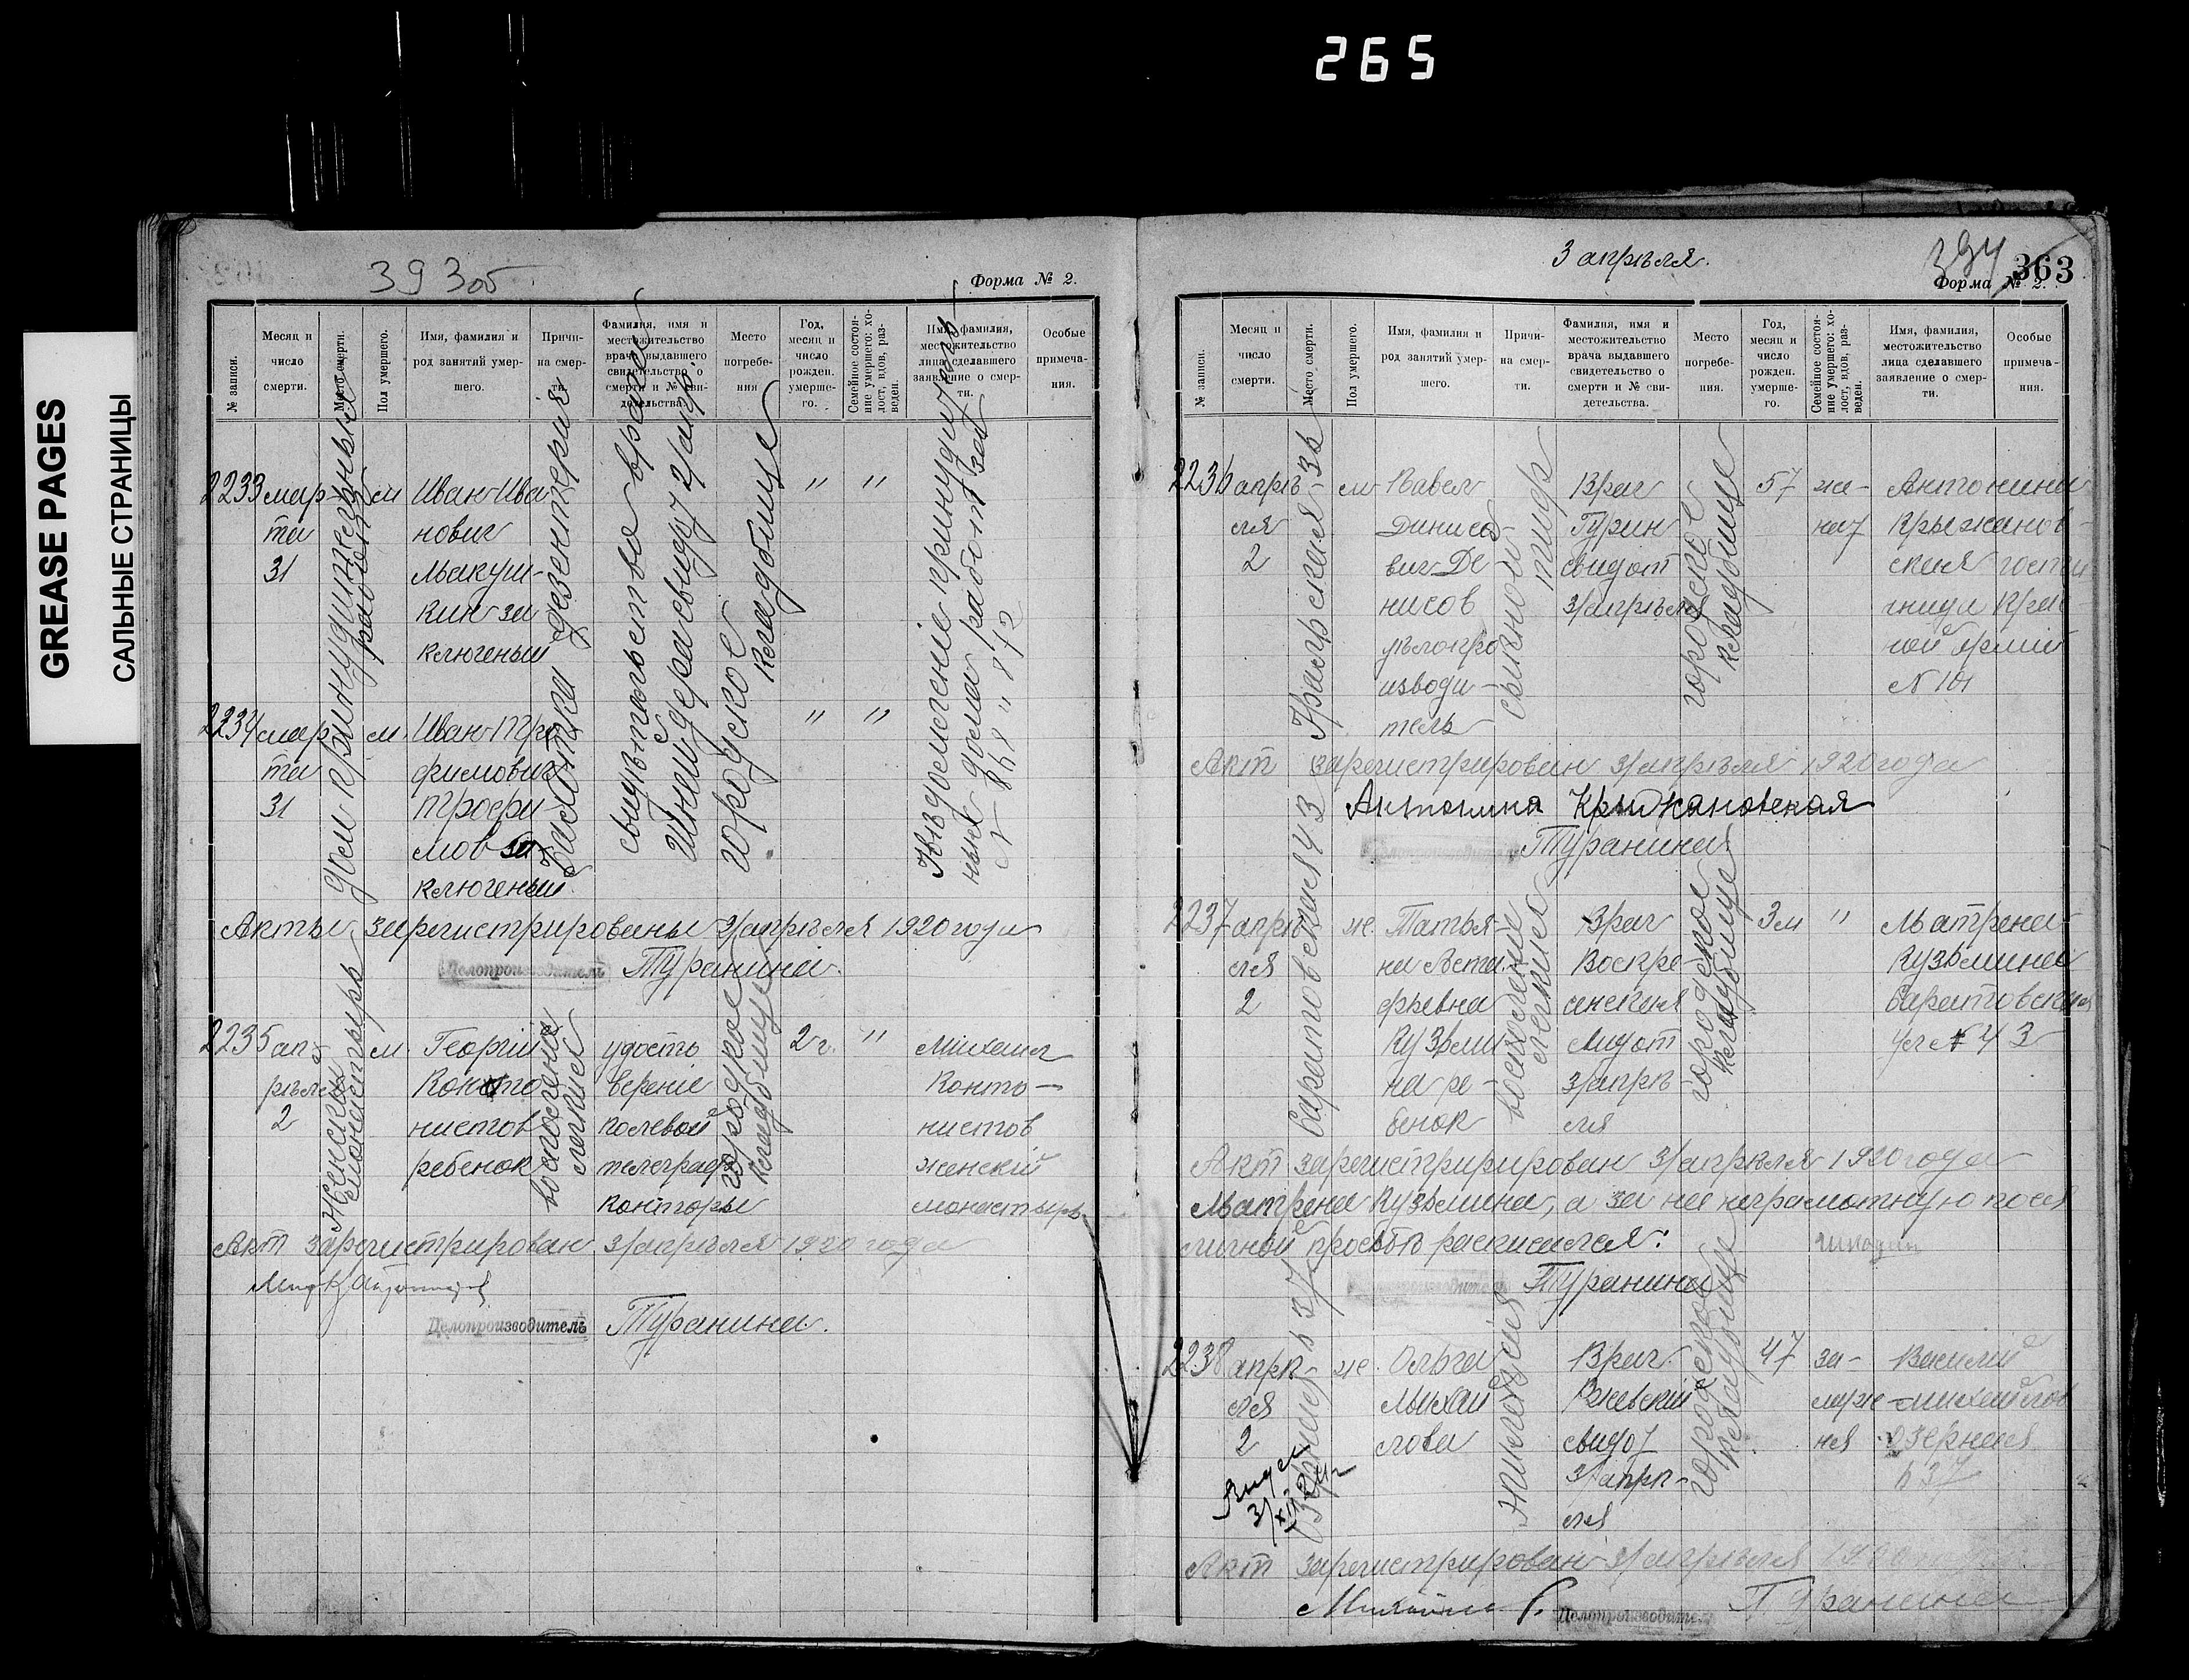 265
GREASE PAGES
САЛЬНЫЕ СТРАНИЦЫ
393об
Форма № 2.
№ записи.
Месяц и число смерти.
Место смерти.
Пол умершего.
Имя, фамилия и род занятий умершего.
Причина смерти.
Фамилия, имя и местожительство врача выдавшего свидетельство о смерти и № свидетельства.
Место погребения
Год, месяц и число рожден. умершего.
Семейное состояние умершего: холост, вдов, разведен.
Имя, фамилия, местожительство лица сделавшего заявление о смерти.
Особые примечания.
2233
мар-
та
31
дом принудительных
работ
м
Иван Ива
нович
Макуш-
кин за
ключеный
2234
мар-
та
31
м.
Иван Тро
фимович
Трофи-
мов за
ключеный
дезентерия
свидѣтельство врача
городское
кладбище
"
"
"
"
№ 848 " 872
Акты зарегистрированы 3/апрѣля 1920 года
Делопроизводитель Туранина.
2235
ап-
рѣля
2
Женский
монастырь
м.
Георгий
Конто
нистов
ребенок
воспаление
легких
удосто
верение
полевой
телеграф
конторы
городское
кладбище
2 г.
"
Михаил
Конто-
нистов
женский
монастырь
Акт зарегистрирован 3/апрѣля 1920 года
Делопроизводитель Туранина.
3 апрѣля.
394
363
Форма № 2.
№ записи.
Месяц и число смерти.
Место смерти.
Пол умершего.
Имя, фамилия и род занятий умершего.
Причина смерти.
Фамилия, имя и местожительство врача выдавшего свидетельство о смерти и № свидетельства.
Место погребения.
Год, месяц и число рожден. умершего.
Семейное состояние умершего: холост, вдов, разведен.
Имя, фамилия, местожительство лица сделавшего заявление о смерти.
Особые примечания.
2236
апрѣ-
ля
2
м
Павел
Динисо-
вич Де-
нисов
дѣлопро
изводи-
тель
сыпной
тиф
Врач
Гурин
свидѣт
3/апрѣля
городское
кладбище
57
же-
нат
Антонина
Крыжанов-
ская
№ 101
Акт зарегистрирован 3/апрѣля 1920 года
Антонина Крыжановская
Делопроизводитель Туранина.
2237
апрѣ
ля
2
Саратовская 43
ж.
Татья-
на Аста-
фьевна
Кузьми
на ре-
бенок
воспаление
легких
Врач
Воскре
сенская
свидѣт
3/апрѣ
ля
городское
кладбище
3 м
"
Матрена
Кузьмина
Саратовская
№ 43
Акт зарегистрирован 3/апрѣля 1920 года
Матрена Кузьмина, а за нея неграмотную по ея
личной просьбѣ расписался:
Делопроизводитель Туранина
2238
апрѣ-
ля
2
ж.
Ольга
Михай
лова
Врач
Ржевский
свидѣт
3/апрѣ-
ля
городское
кладбище
47
за-
муж-
няя
Василий
Михайлов
Озерная
д 37
Акт зарегистрирован 3/апрѣля 1920 года
Делопроизводитель Туранина